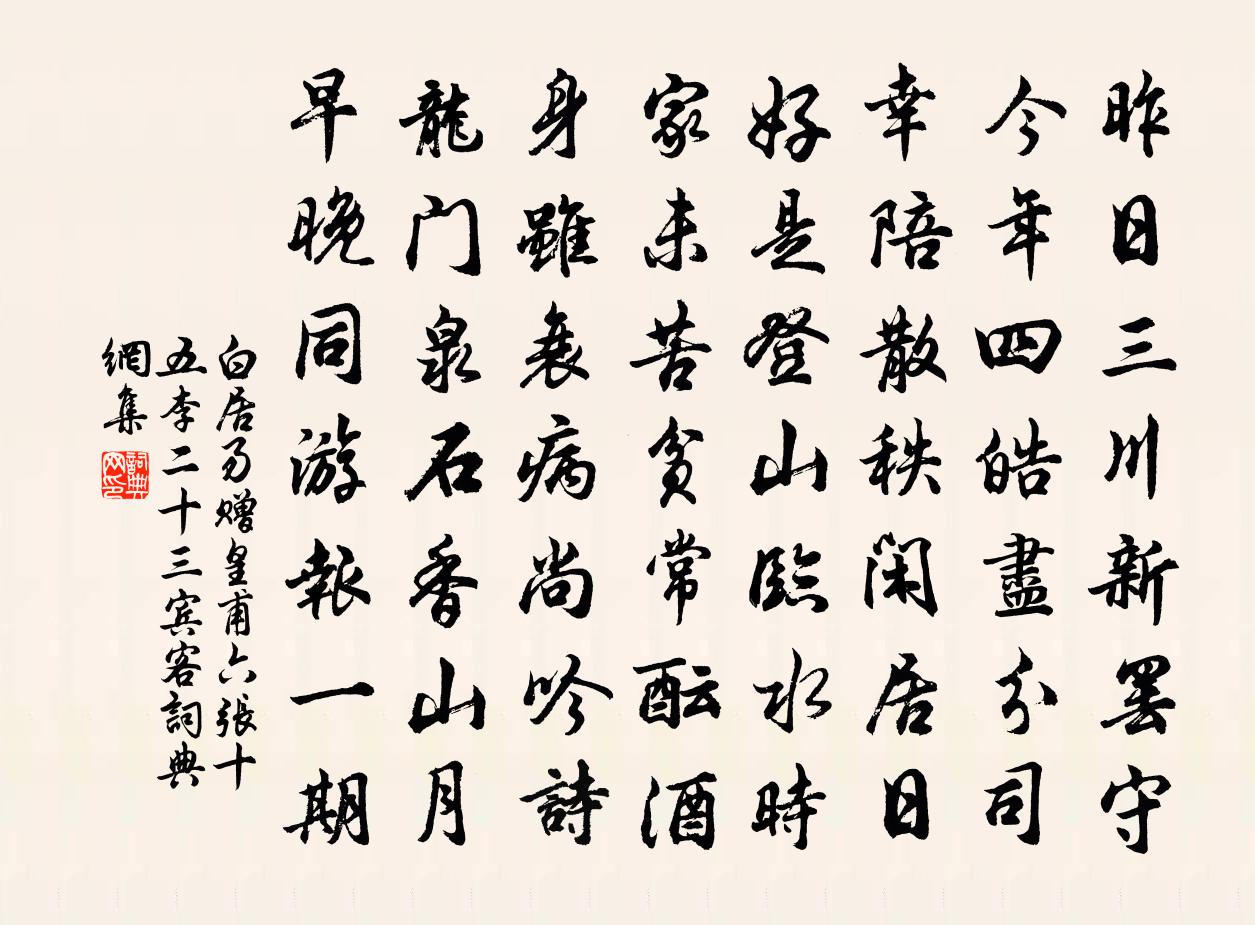 昨日三川新罢守
今年四皓盡分司
幸陪散秩闲居日
好是登山臨水時
家未苦贫常酝酒
身雖衰病尚吟詩
龍门泉石香山月
早晚同游報一期
白居易赠皇甫六張十
五李二十三宾客詞典
網集
詞典
网印